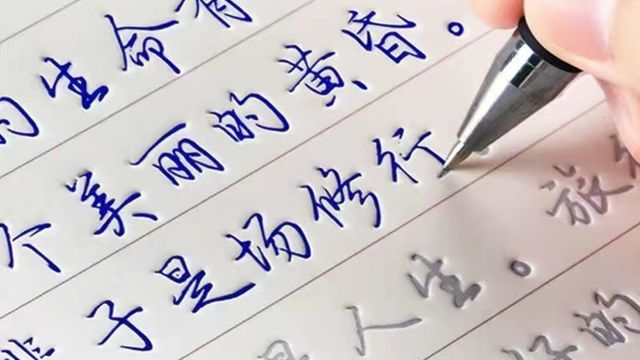 的生命有
个美丽的黄昏。
辈子是场修行
是人生。旅
好的